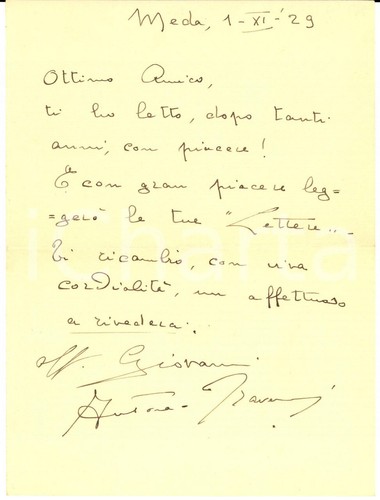 Meda, 1-XI-29
Ottimo Amico,
ti ho letto, dopo tanti
anni, con piacere!
E con gran piacere leg=
=gerò le tue "Lettere...
Ti ricambio, con viva
cordialità, un affettuoso
a rivederci.
aff. Giovanni
Antona-Traversi
iCharta